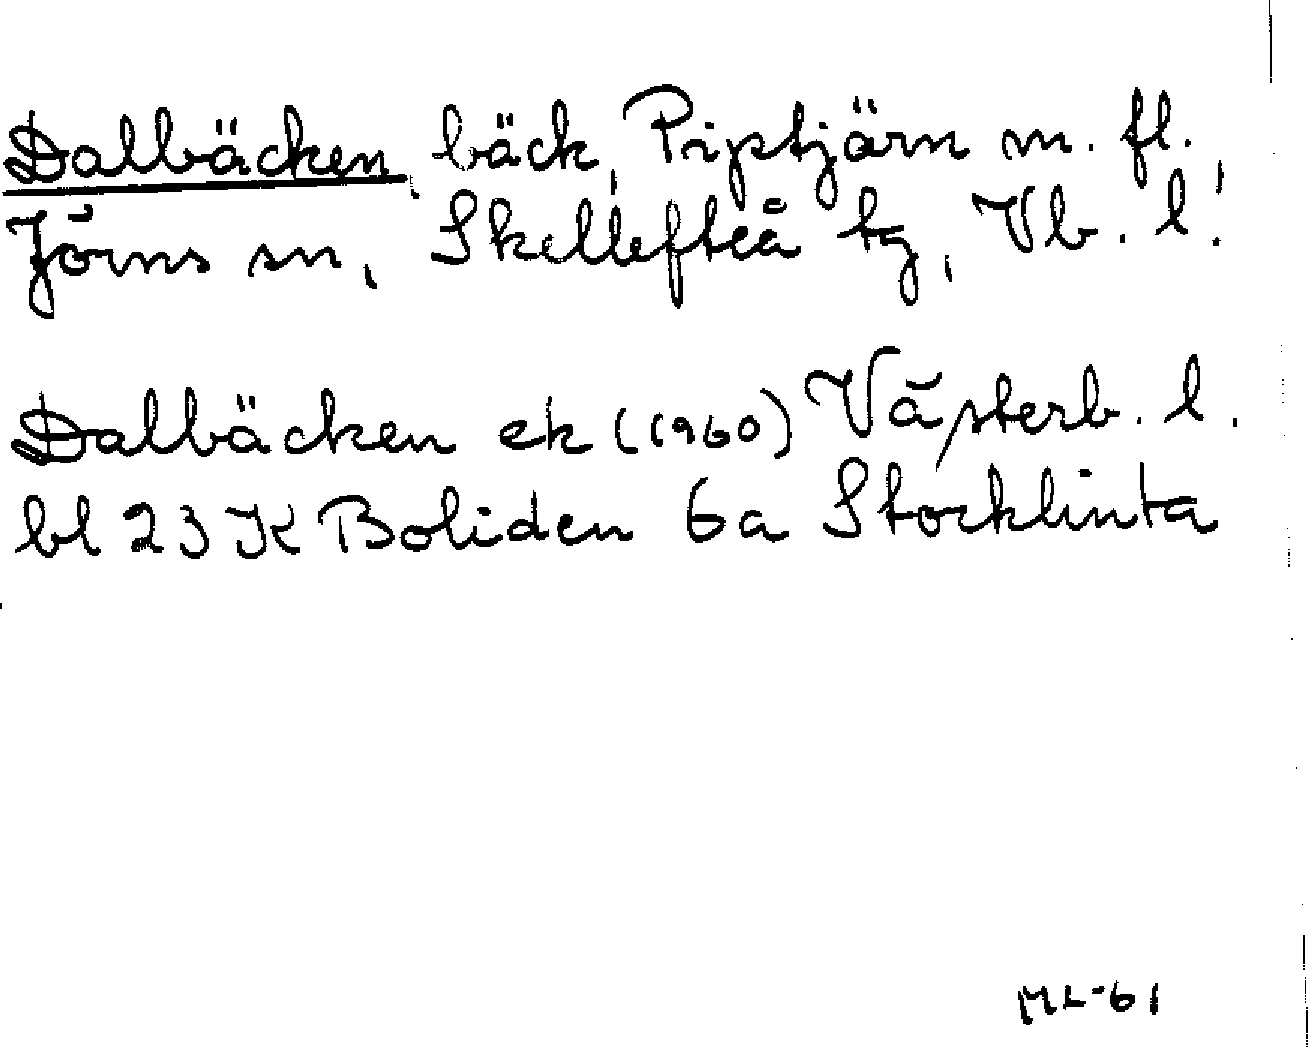 Dalbäcken, bäck, Piptjärn m. fl.,
Jörns sn, Skellefteå tg, Vb. l.
Dalbäcken ek (1960) Västerb. l.
bl 23 K Boliden 6a Stocklinta
ML-61